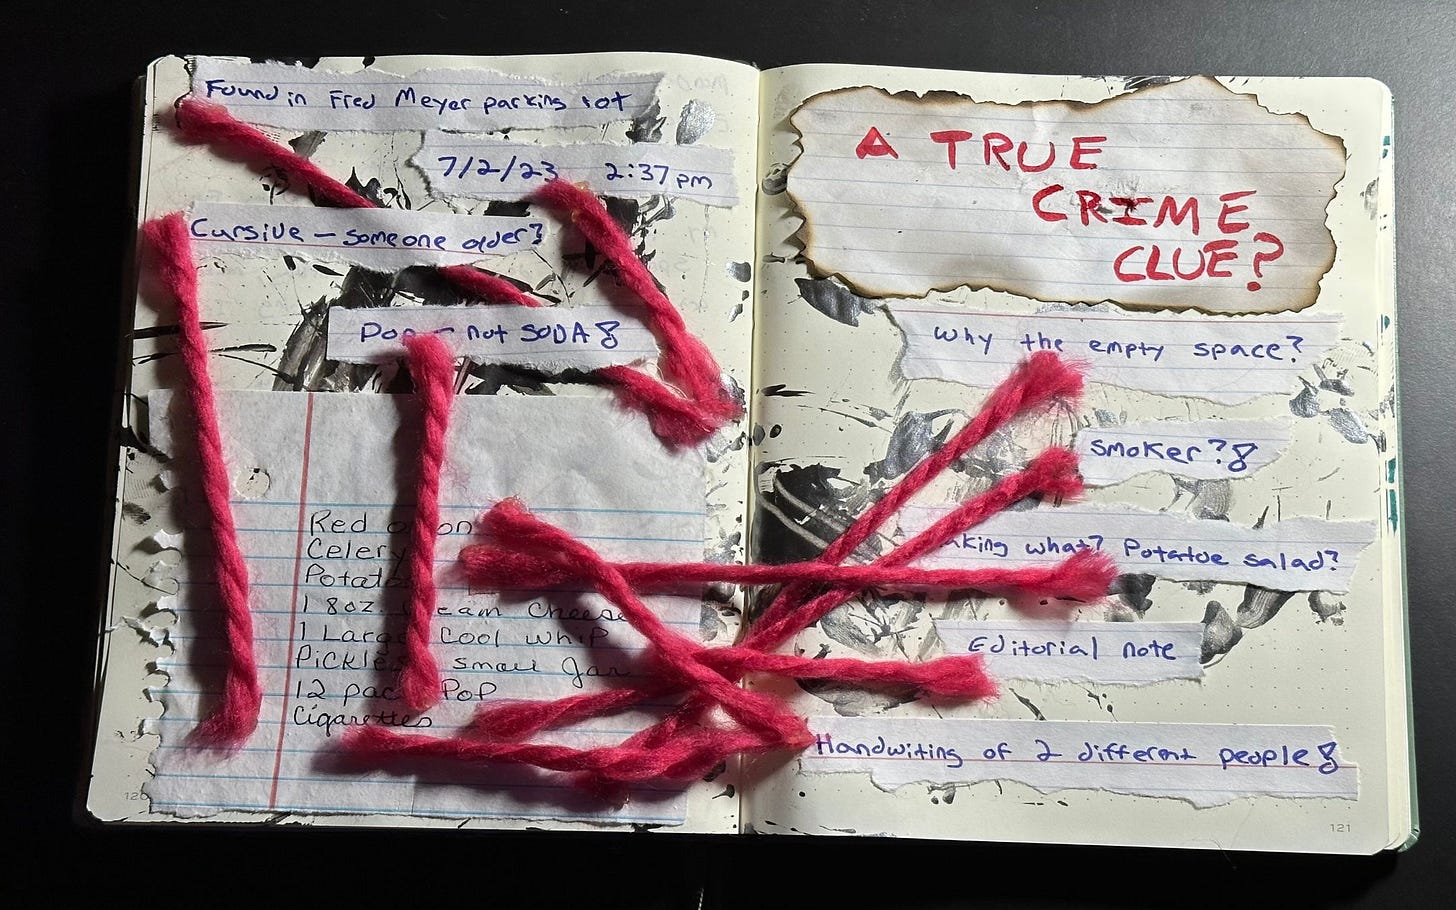 Found in Fred Meyer parking lot
7/2/23 2:37pm
Cursive – someone older?
not SODA!
Red
Celery
1 8oz. Cheese
1 Large Cool Whip
Pickle small Jar
12 pack Pop
Cigarettes
A TRUE
CRIME
CLUE?
Why the empty space?
Smoker?!
what? Potatoe salad?
Editorial note
Handwiting of 2 different people!
121